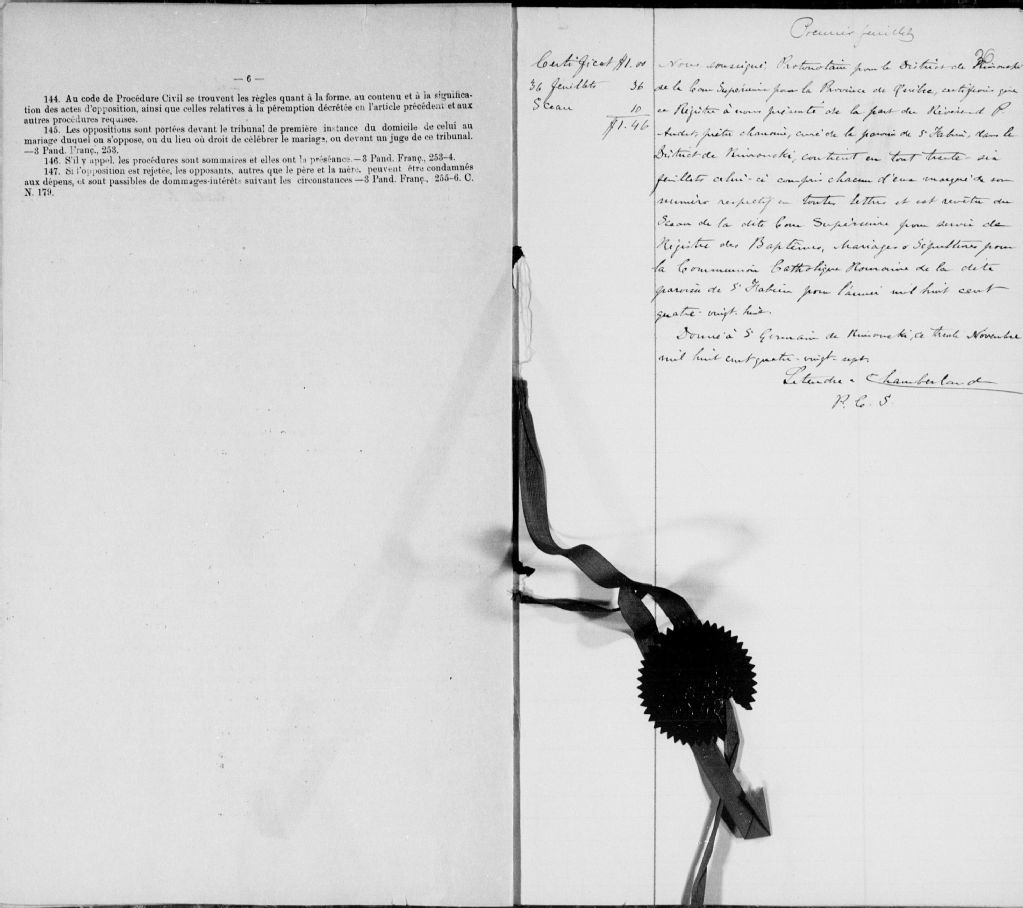 — 6 —
144. Au code de Procédure Civil se trouvent les règles quant à la forme, au contenu et à la significa-
tion des actes d'opposition, ainsi que celles relatives à la péremption décrétée en l'article précédent et aux
autres procédures requises.
145. Les oppositions sont portées devant le tribunal de première instance du domicile de celui au
mariage duquel on s'oppose, ou du lieu où droit de célébrer le mariage, ou devant un juge de ce tribunal.
—3 Pand. Franç., 253.
146. S'il y appel, les procédures sont sommaires et elles ont la préséance.—3 Pand. Franç., 253-4.
147. Si l'opposition est rejetée, les opposants, autres que le père et la mère, peuvent être condamnés
aux dépens, et sont passibles de dommages-intérêts suivant les circonstances —3 Pand. Franç., 255-6. C.
N. 179.
Premier feuillet
36
Certificat $1.00
36 feuillets 36
Sceau 10
$1.46
Nous soussigné, Protonotaire pour le District de Rimouski
de la Cour Supérieure pour la Province de Québec, certifions que
ce Régistre à nous présenté de la part du Révérend P.
Audet, prêtre chanoine, curé de la paroisse de St Fabien, dans le
District de Rimouski, contient en tout trente-six
feuillets celui-ci compris chacun d'eux marqué de son
numéro respectif en toutes lettres et est revêtu du
Sceau de la dite Cour Supérieure pour servir de
Régistre des Baptêmes, Mariages & Sépultures pour
la Communion Catholique Romaine de la dite
paroisse de St Fabien pour l'année mil huit cent
quatre-vingt-huit.
Donné à St Germain de Rimouski, ce trente Novembre
mil huit cent quatre-vingt-sept.
Letendre & Chamberland
P. C. S.